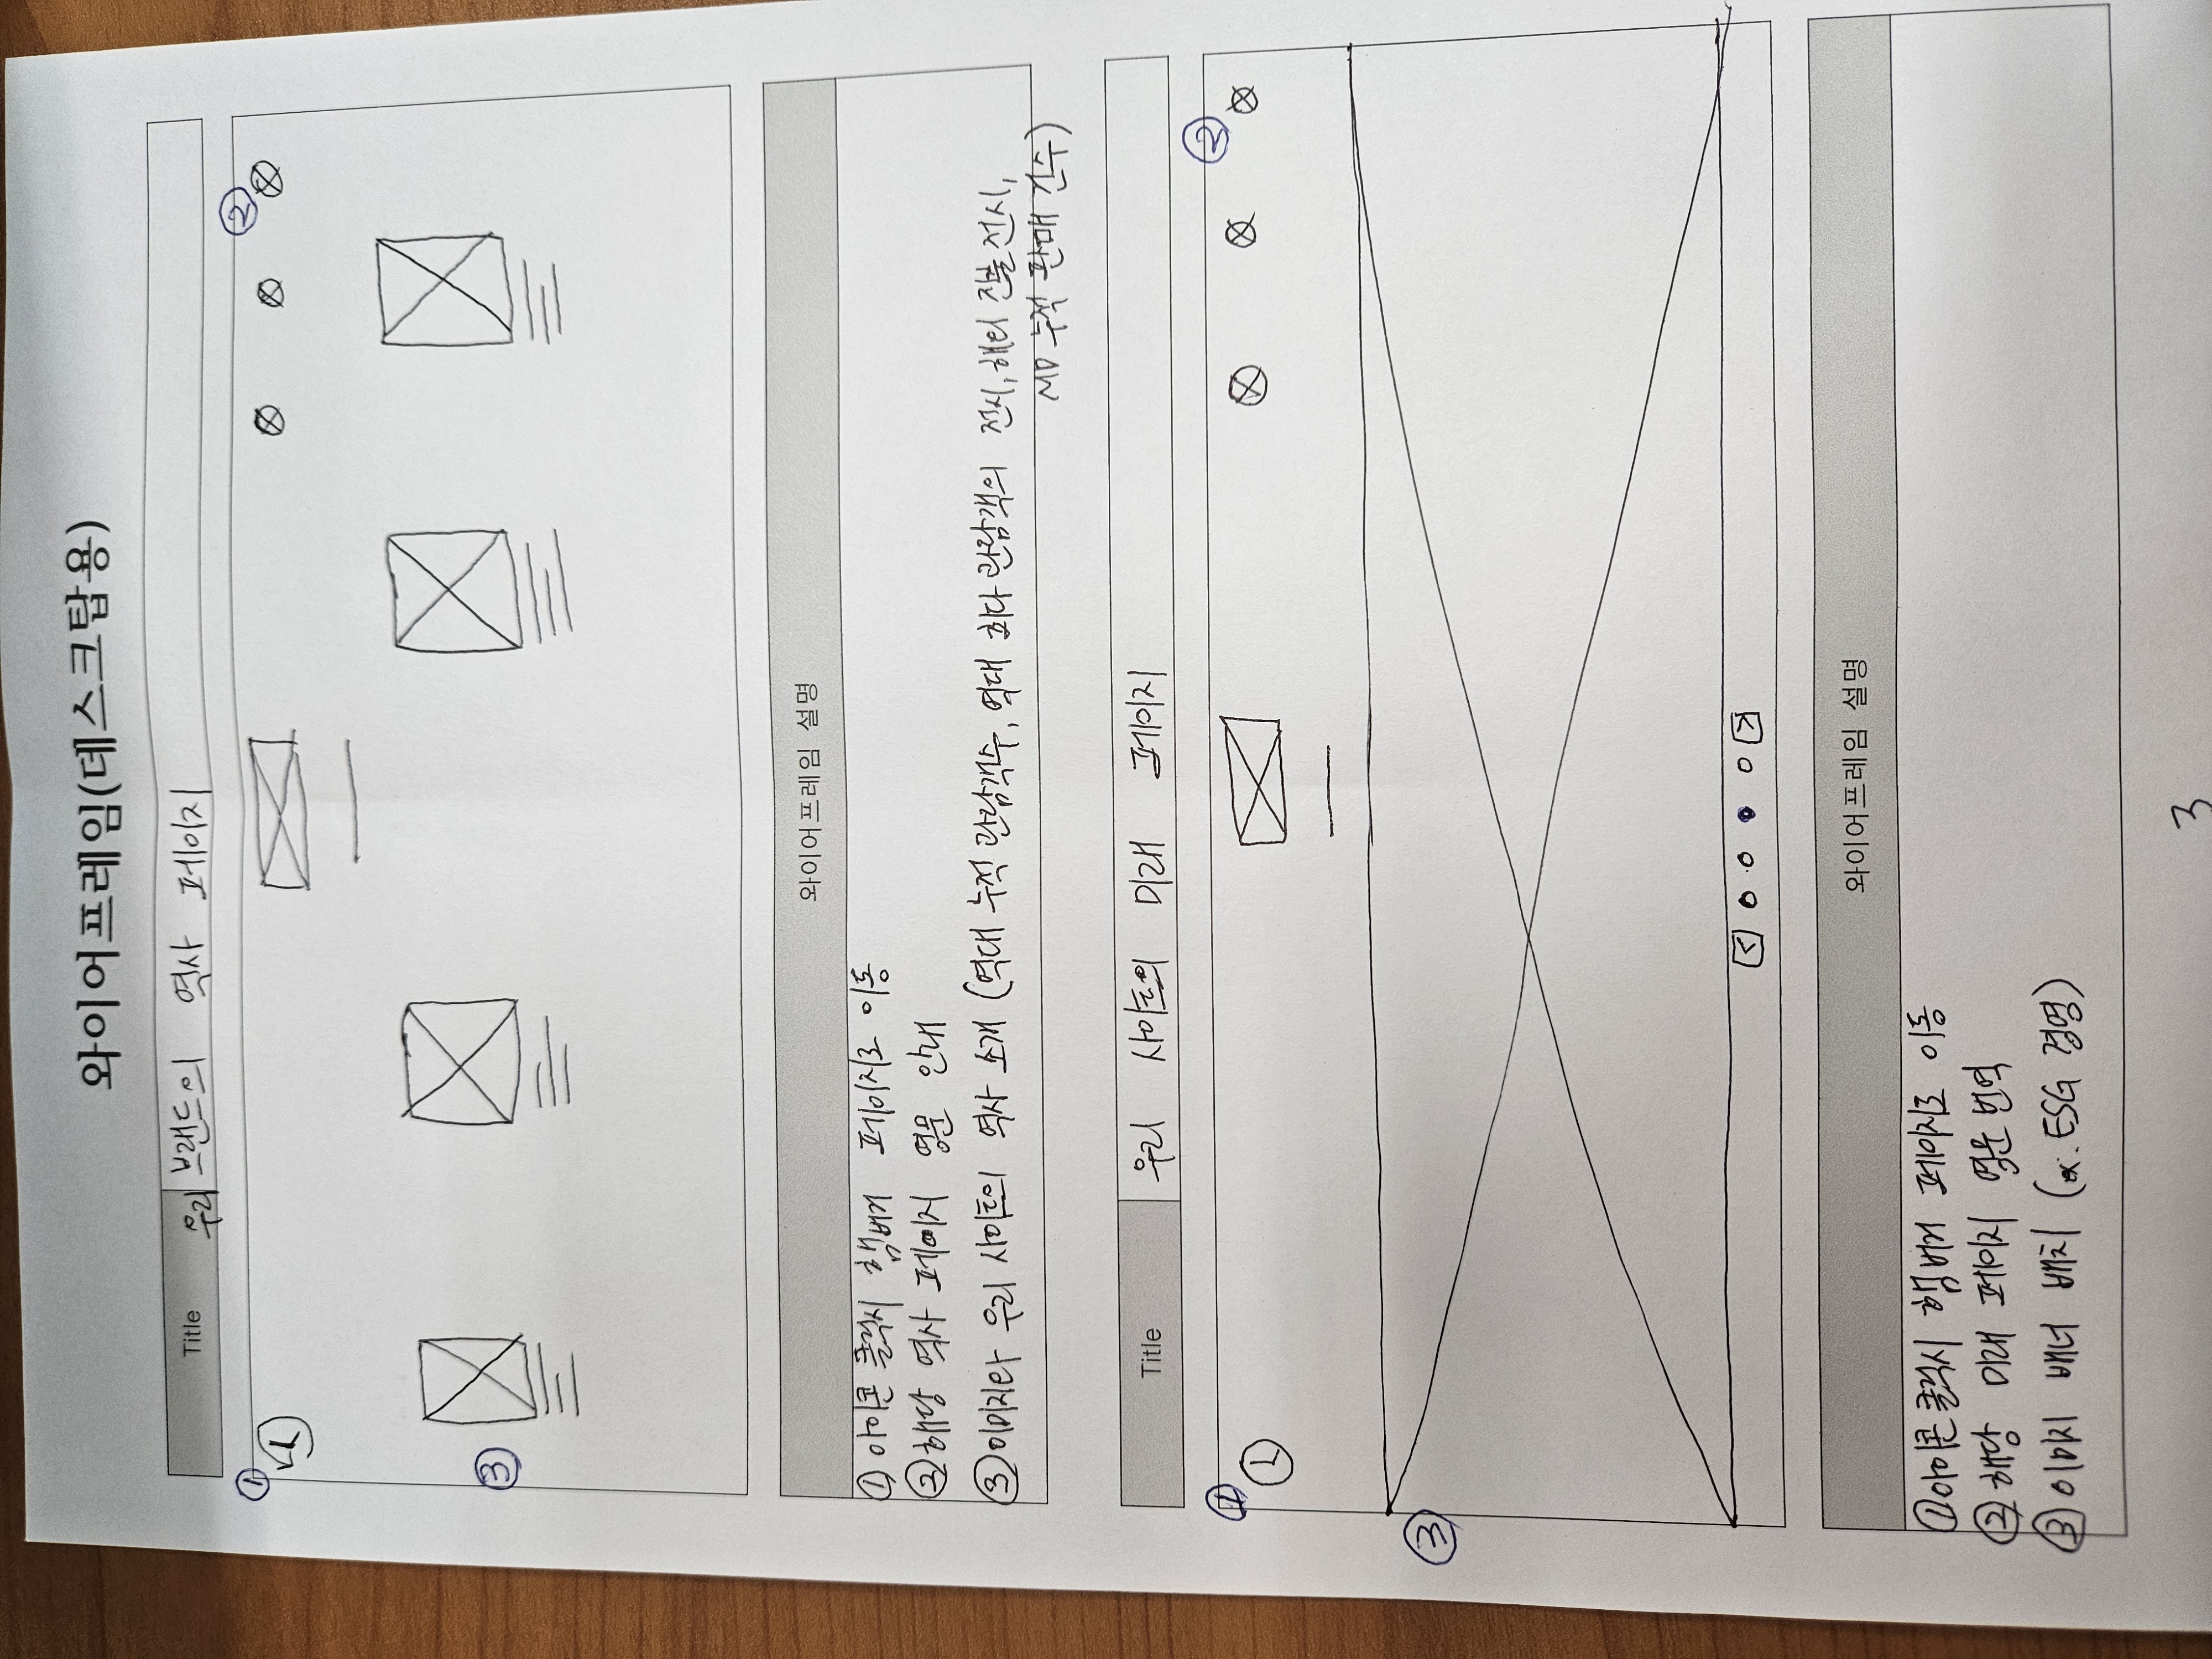 와이어프레임(데스크탑용)
Title 우리 브랜드의 역사 페이지
① ②
③
와이어프레임 설명
① 아이콘 클릭시 햄버거 페이지로 이동
② 해당 역사 페이지 영문 안내
③ 이미지와 우리 사이트의 역사 소개 (역대 누적 관람객수, 역대 최다 관람객의 전시, 해외 진출 전시,
MD 누적 판매 건수)
Title 우리 사이트의 미래 페이지
① ②
③
< >
와이어프레임 설명
① 아이콘 클릭시 햄버거 페이지로 이동
② 해당 미래 페이지 영문 번역
③ 이미지 배너 배치 (ex. ESG 경영)
3